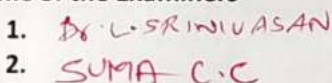 1. Dr. L. SRINIVASAN
2. SUMA C.C